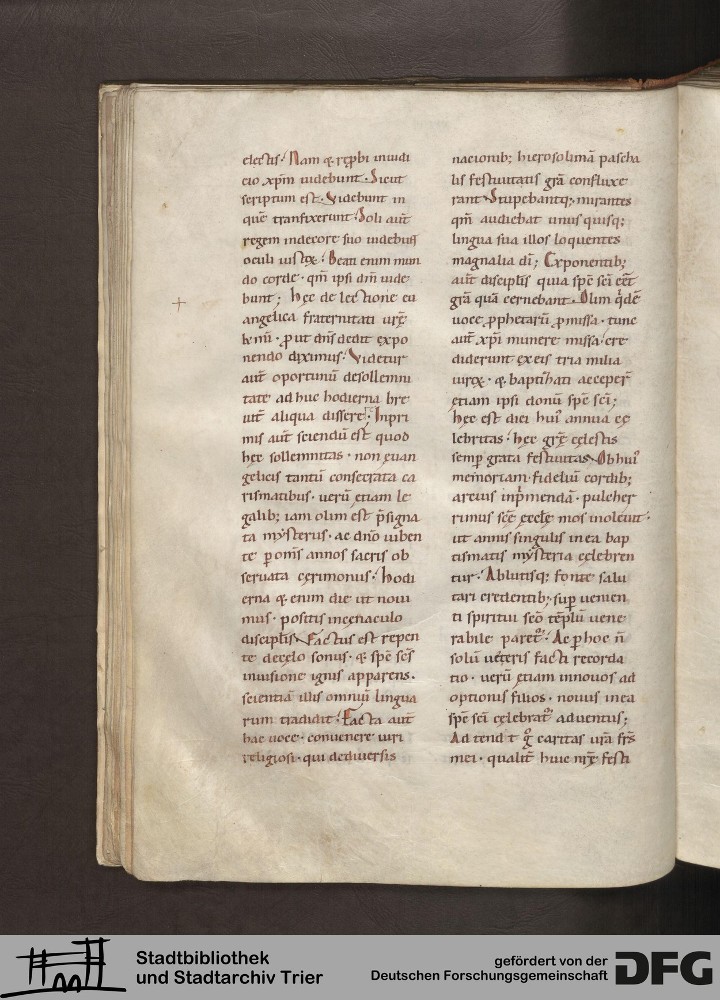 electis. Nam & reprobi in iudi
cio xp̄m uidebunt. Sicut
scriptum est. Videbunt in
quē tranfixerunt. Soli aut̄
regem in decore suo uidebunt
oculi iustoꝝ. Beati enim mun
do corde. qm̄ ipsi dm̄ uide
bunt; hęc de lectione eu
angelica fraternitati urę̄
k̄mi. prout dn̄s dedit expo
nendo diximus. Videtur
aut̄ oportunū de sollemni
tate ad huc hodierna bre
uit̄ aliqua dissere. Inpri
mis aut̄ sciendū est quod
hęc sollemnitas. non euan
gelicis tantū consecrata ca
rismatibus. uerū etiam le
galib; iam olim est p̄signa
ta mysteriis. ac dn̄o iuben
te ꝑ om̄s annos sacris ob
seruata cęrimoniis. Hodi
erna & enim die ut noui
mus. positis in cęnaculo
discipl̄is. Factus est repen
te de cęlo sonus. & sp̄c sc̄s
in uisione ignis apparens.
scientiā illis omniū lingua
rum tradidit. Facta aut̄
hac uoce. conuenere uiri
religiosi. qui de diuersis
nacionib; hierosolimā pascha
lis festiuitatis grā confluxe
rant. Stupebantq; mirantes
qm̄ audiebat unus quisq;
lingua sua illos loquentes
magnalia dī; Exponentib;
aut̄ discipl̄is quia sp̄c sc̄i eēt
grā quā cernebant. Olim q̇dē
uoce ꝓphetarū ꝓmissa. tunc
aut̄ xp̄i munere missa. cre
diderunt ex eis tria milia
uiroꝝ. & baptizati acceper̄
etiam ipsi donū sp̄c sc̄i;
hęc est diei hui' annua cę
lebritas. hęc grę̄ cęlestis
semꝑ grata festiuitas. Ob hui'
memoriam fidelíū cordib;
arcius inp̍mendā. pulcher
rimus sc̄ę ęccl̄ę mos inoleuit.
ut annis singulis in ea bap
tismatis mysteria cęlebren
tur. Ablutisq; fonte salu
tari credentib; suꝑ uenien
ti spiritui sc̄o tēplū uene
rabile paret'. Ac ꝑ hoc n̄
solū ueteris facti recorda
tio. uerū etiam in nouos ad
optionis filios. nouus in ea
sp̄c sc̄i cęlebrat' aduentus;
Ad tendat g̊ caritas urā frs̄
mei. qualit̄ huic nrę̄ festi
Stadtbibliothek
und Stadtarchiv Trier
gefördert von der
Deutschen Forschungsgemeinschaft
DFG